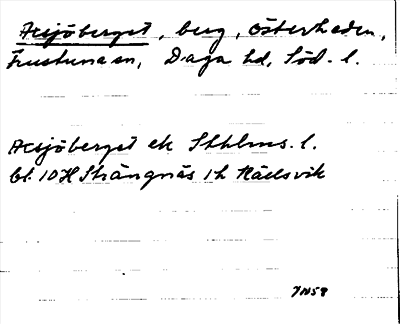 Acsjöberget, berg, Österheden,
Frustuna sn, Daga hd, Söd. l.
Acsjöberget ek Sthlms. l.
bl. 10H Strängnäs 1h Näelsvik